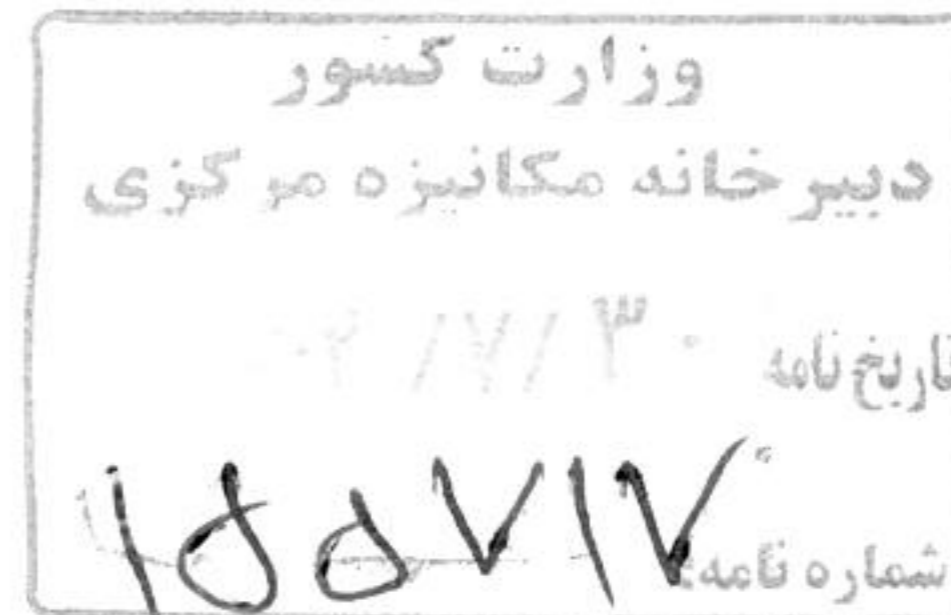 وزارت کشور
دبیرخانه مکانیزه مرکزی
تاریخ نامه /۷/۳۰
شماره نامه: ۱۵۵۷۱۷